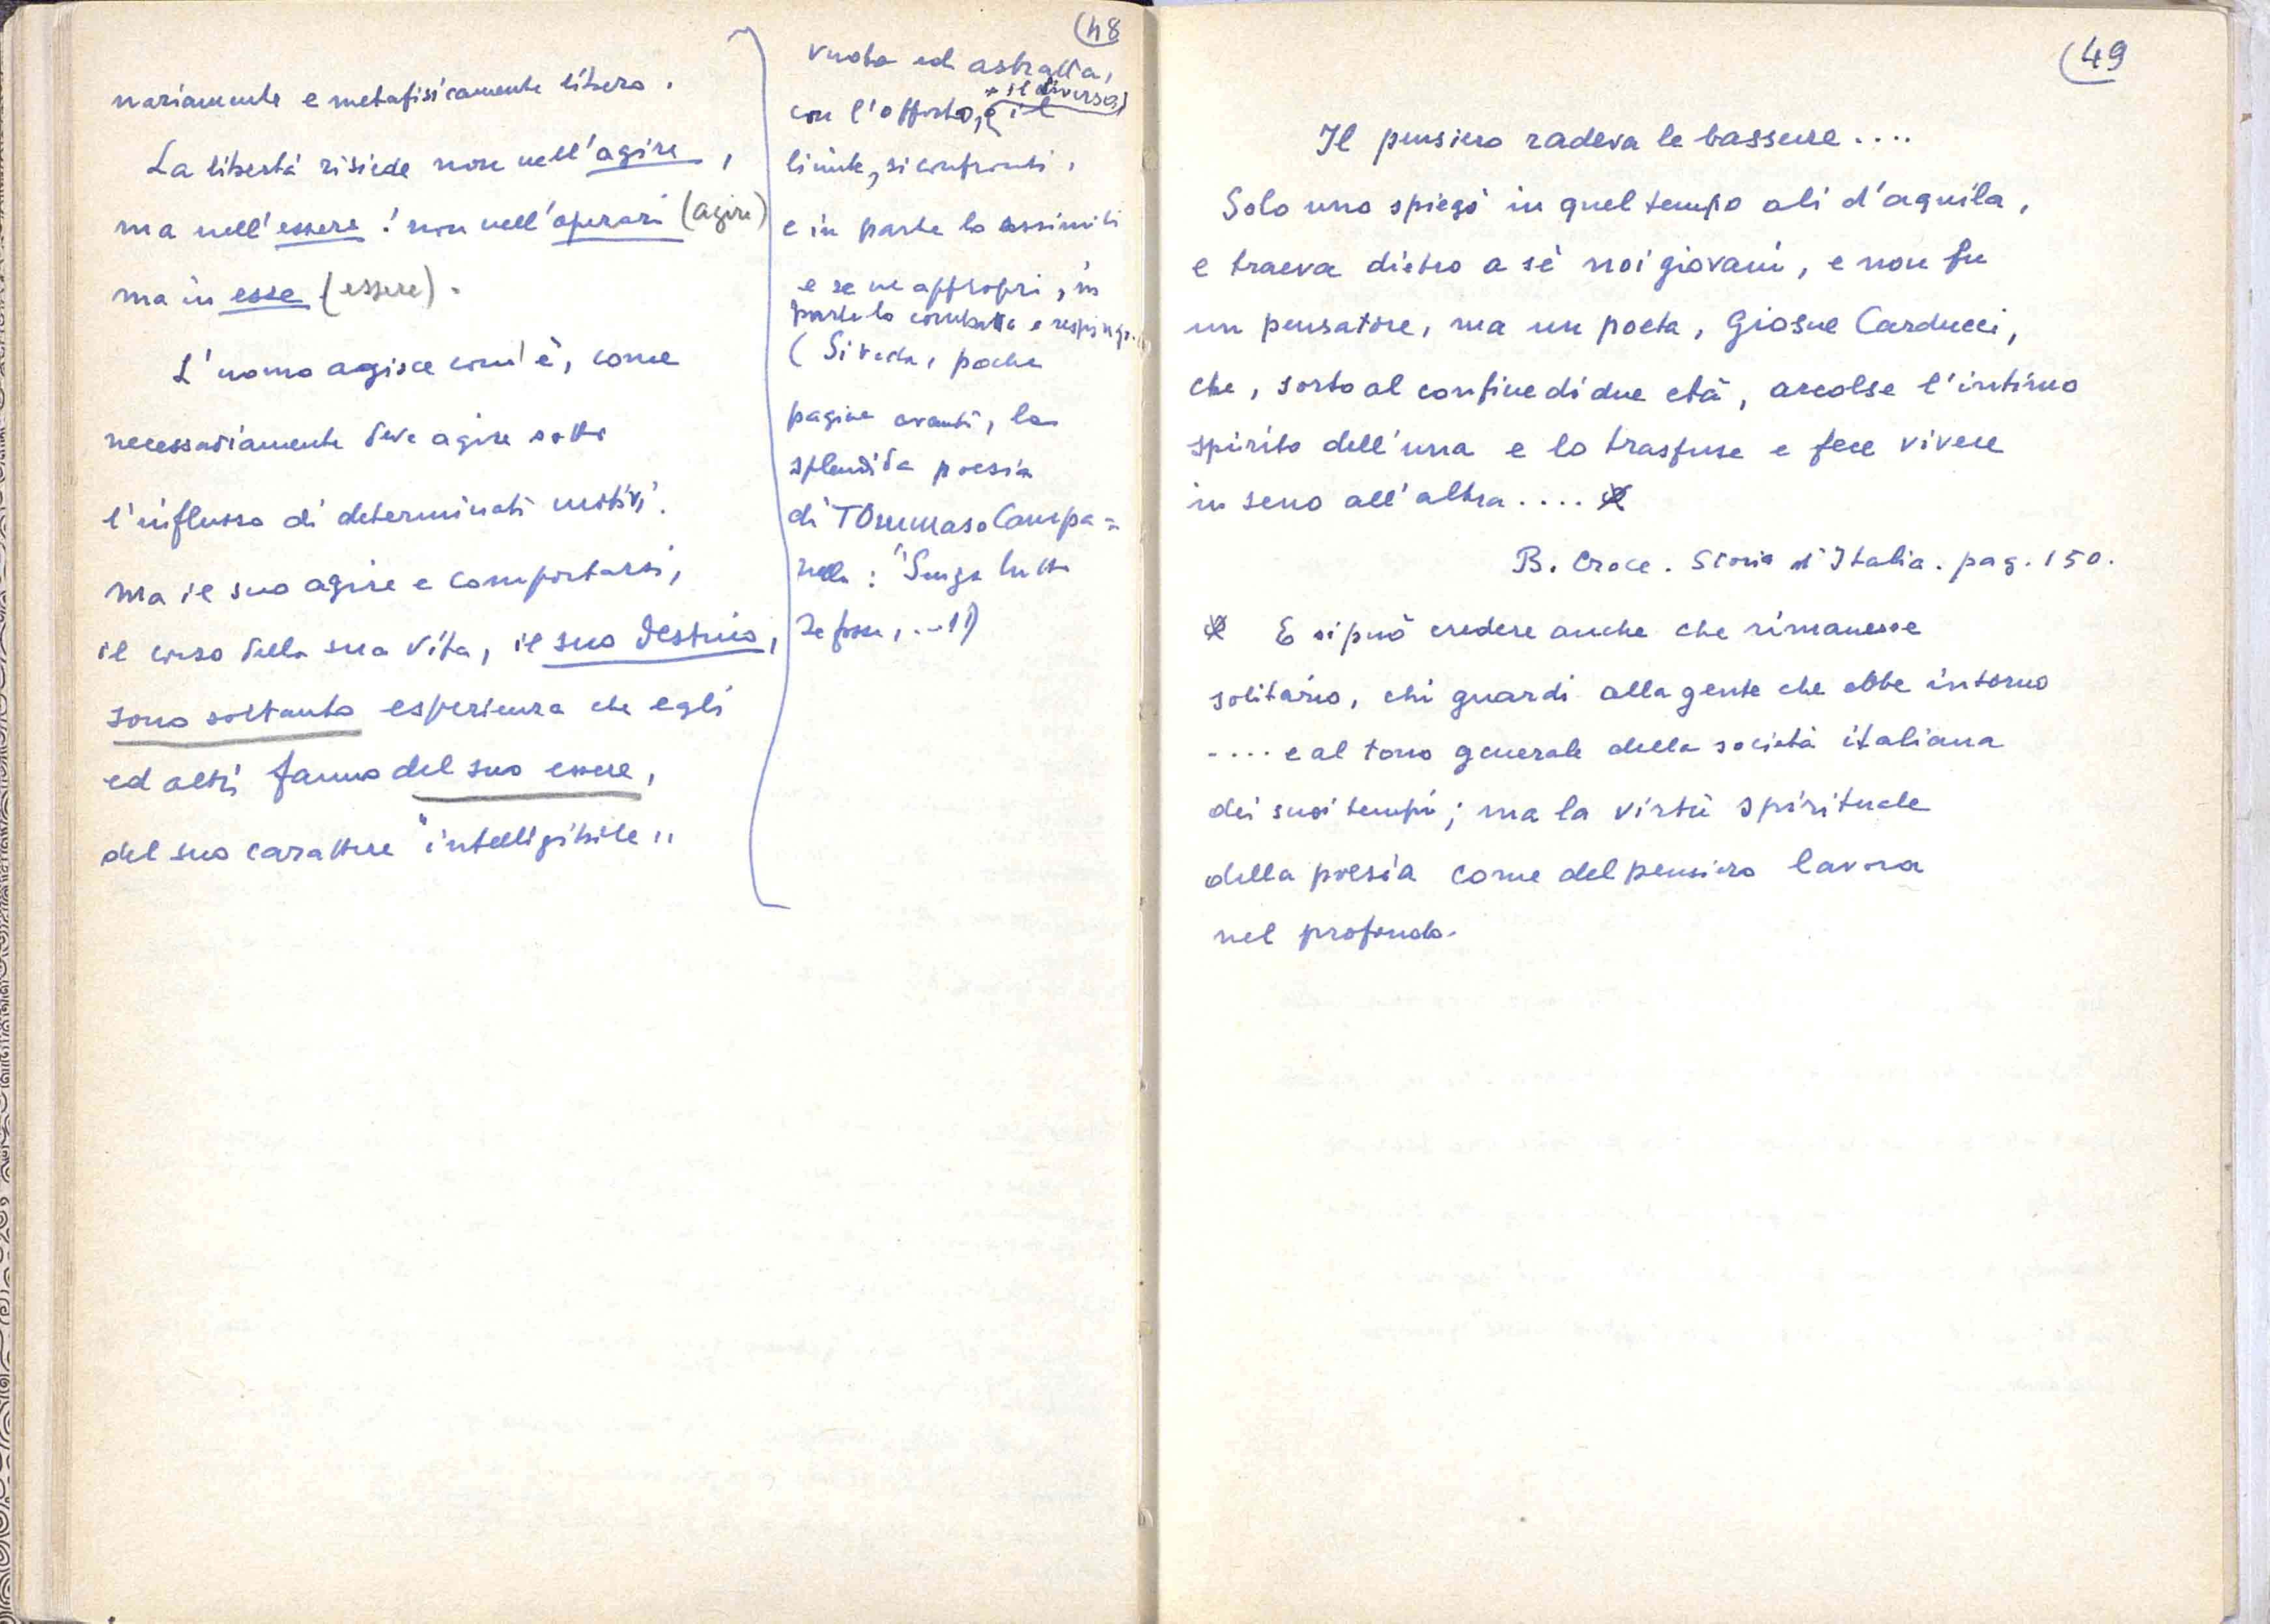 48
nariamente e metafisicamente libero.
La libertà risiede non nell'agire,
ma nell'essere: non nell'operari (agire)
ma in esse (essere).
L'uomo agisce com'è, come
necessariamente deve agire sotto
l'influsso di determinati motivi.
Ma il suo agire e comportarsi,
il corso della sua vita, il suo destino,
sono soltanto esperienza che egli
ed altri fanno del suo essere,
del suo carattere "intelligibile"
vuota ed astratta,
e il diverso
con l'opposto, e il
limite, si confronti,
e in parte lo assimili
e se ne appropri, in
parte lo combatta e respinga.
(Si veda, poche
pagine avanti, la
splendida poesia
di Tommaso Campa=
nella: "Senza tutto
se fosse, ...")
49
Il pensiero radeva le bassure....
Solo uno spiegò in quel tempo ali d'aquila,
e traeva dietro a sè noi giovani, e non fu
un pensatore, ma un poeta, Giosue Carducci,
che, sorto al confine di due età, accolse l'intimo
spirito dell'una e lo trasfuse e fece vivere
in seno all'altra....
B. Croce. Storia d'Italia. pag. 150.
E si può credere anche che rimanesse
solitario, chi guardi alla gente che ebbe intorno
.... e al tono generale della società italiana
dei suoi tempi; ma la virtù spirituale
della poesia come del pensiero lavora
nel profondo.